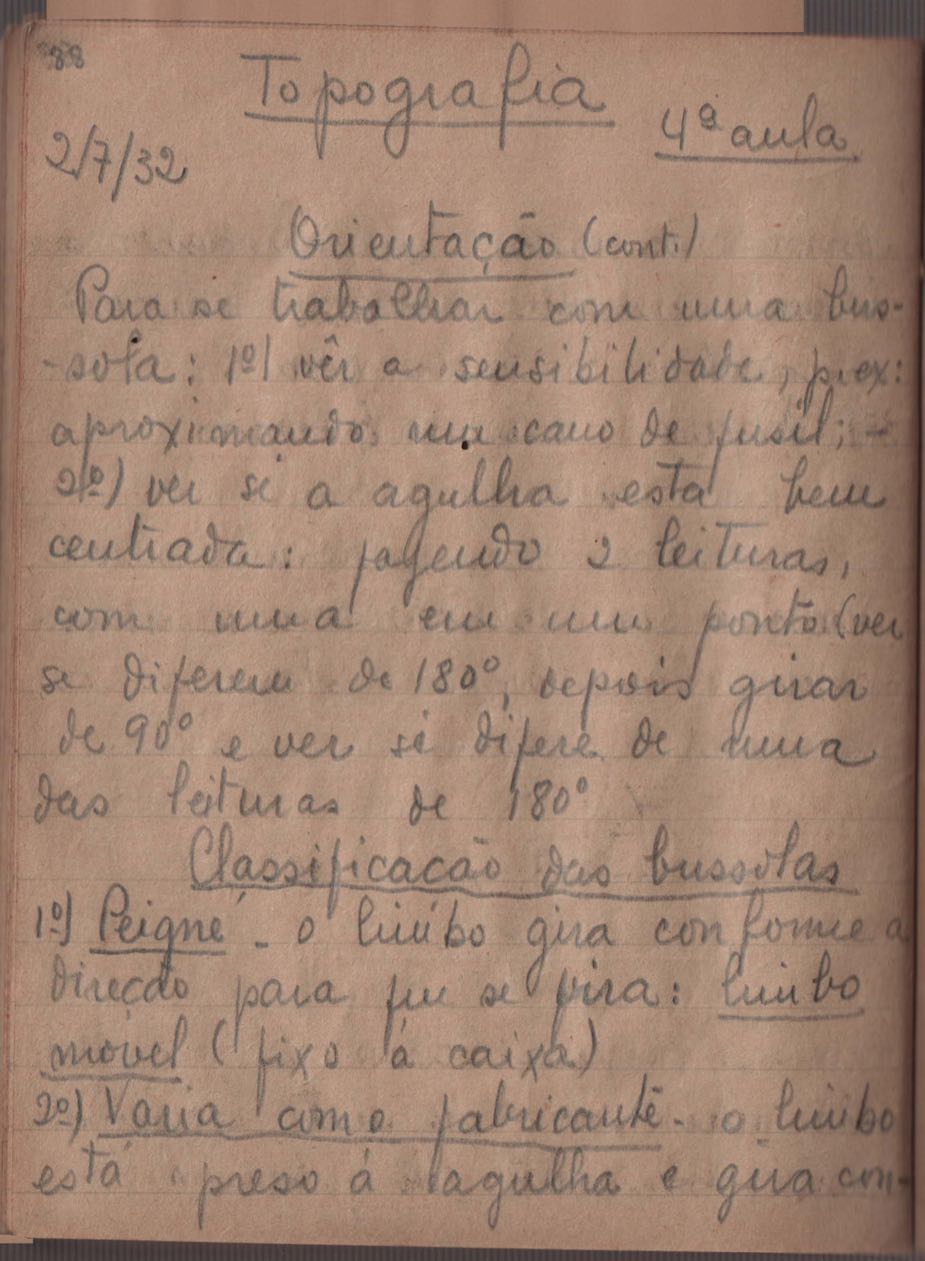 88
Topografia
4ª aula
2/7/32
Orientação (cont.)
Para se trabalhar com uma bus-
-sola: 1º) vêr a sensibilidade, p. ex:
aproximando um cano de fusil; -
2º) ver si a agulha está bem
centrada: fazendo 2 leituras,
com uma em um ponto (ver
se diferem de 180º, depois girar
de 90º e ver si difere de uma
das leituras de 180º
Classificação das bussolas
1º) Peigné - o limbo gira conforme a
direção para que se vira: limbo
movel (fixo á caixa)
2º) Varia com o fabricante - o limbo
está preso á agulha e gira con-